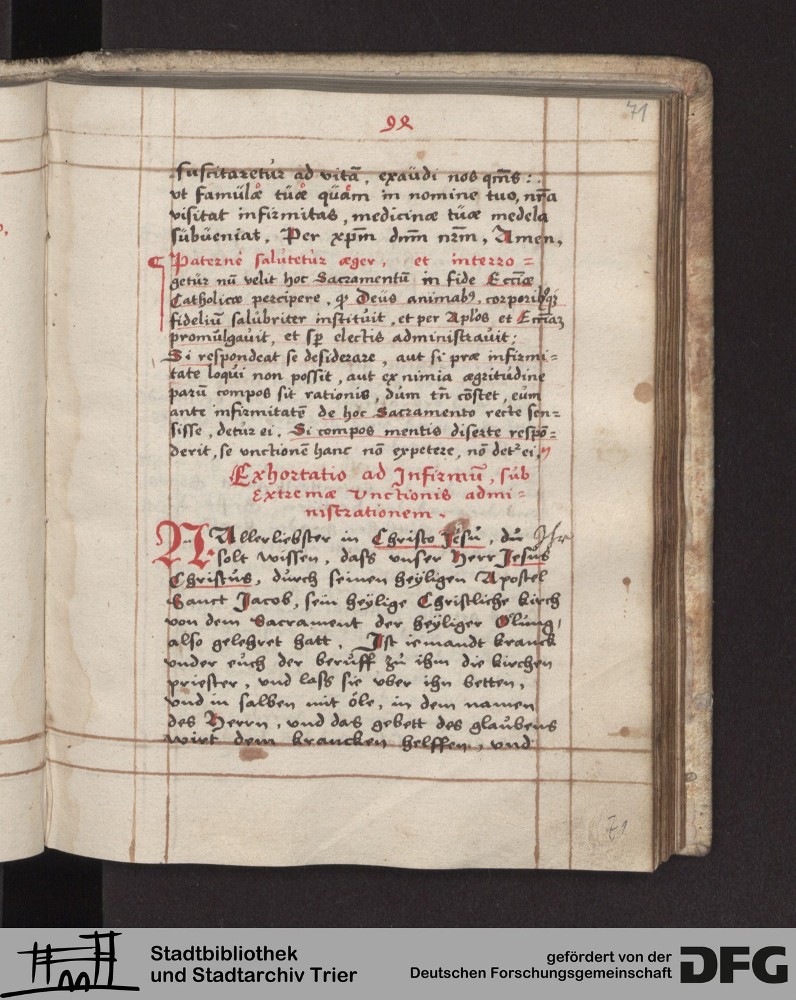 71
suscitaretur ad vitã, exaudi nos qm̃s:
vt famulæ tuæ quãm in nomine tuo, nr̃a
visitat infirmitas, medicinæ tuæ medela
subueniat. Per xp̃m dñm nr̃m, Amen,
Paternè salutetur æger, et interro=
getur nũ velit hoc Sacramentũ in fide Eccl̃iæ
Catholicæ percipere, Deus animab9, corporibusq3
fideliũ salubriter instituit, et per Apl̃os et
promulgauit, et electis administrauit:
Si respondeat se desiderare, aut si præ infirmi=
tate loqui non possit, aut ex nimia ægritudine
parũ compos sit rationis, dum tñ cõstet, eum
ante infirmitatẽ de hoc Sacramento recte sen=
sisse, detur ei. Si compos mentis diserte respõ=
derit, se vnctionẽ hanc nõ expetere, nõ detr ei.
Exhortatio ad Infirmũ, sub
Extremæ Vnctionis admi=
nistrationem.
Allerliebster in Christo Jesu, du Ihr
solt wissen, dass vnser Herr Jesus
Christus, durch seinen heyligen Apostel
Sanct Jacob, sein heylige Christliche kirch
von dem Sacrament der heyliger Ölung,
also gelehret hatt. Ist iemandt kranck
vnder euch der beruff zu ihm die kirchen
priester, vnd lass sie vber ihn betten,
vnd in salben mit öle, in dem namen
des Herrn, vnd das gebett des glaubens
wirt dem krancken helffen, vnd
71
Stadtbibliothek
und Stadtarchiv Trier
gefördert von der
Deutschen Forschungsgemeinschaft
DFG